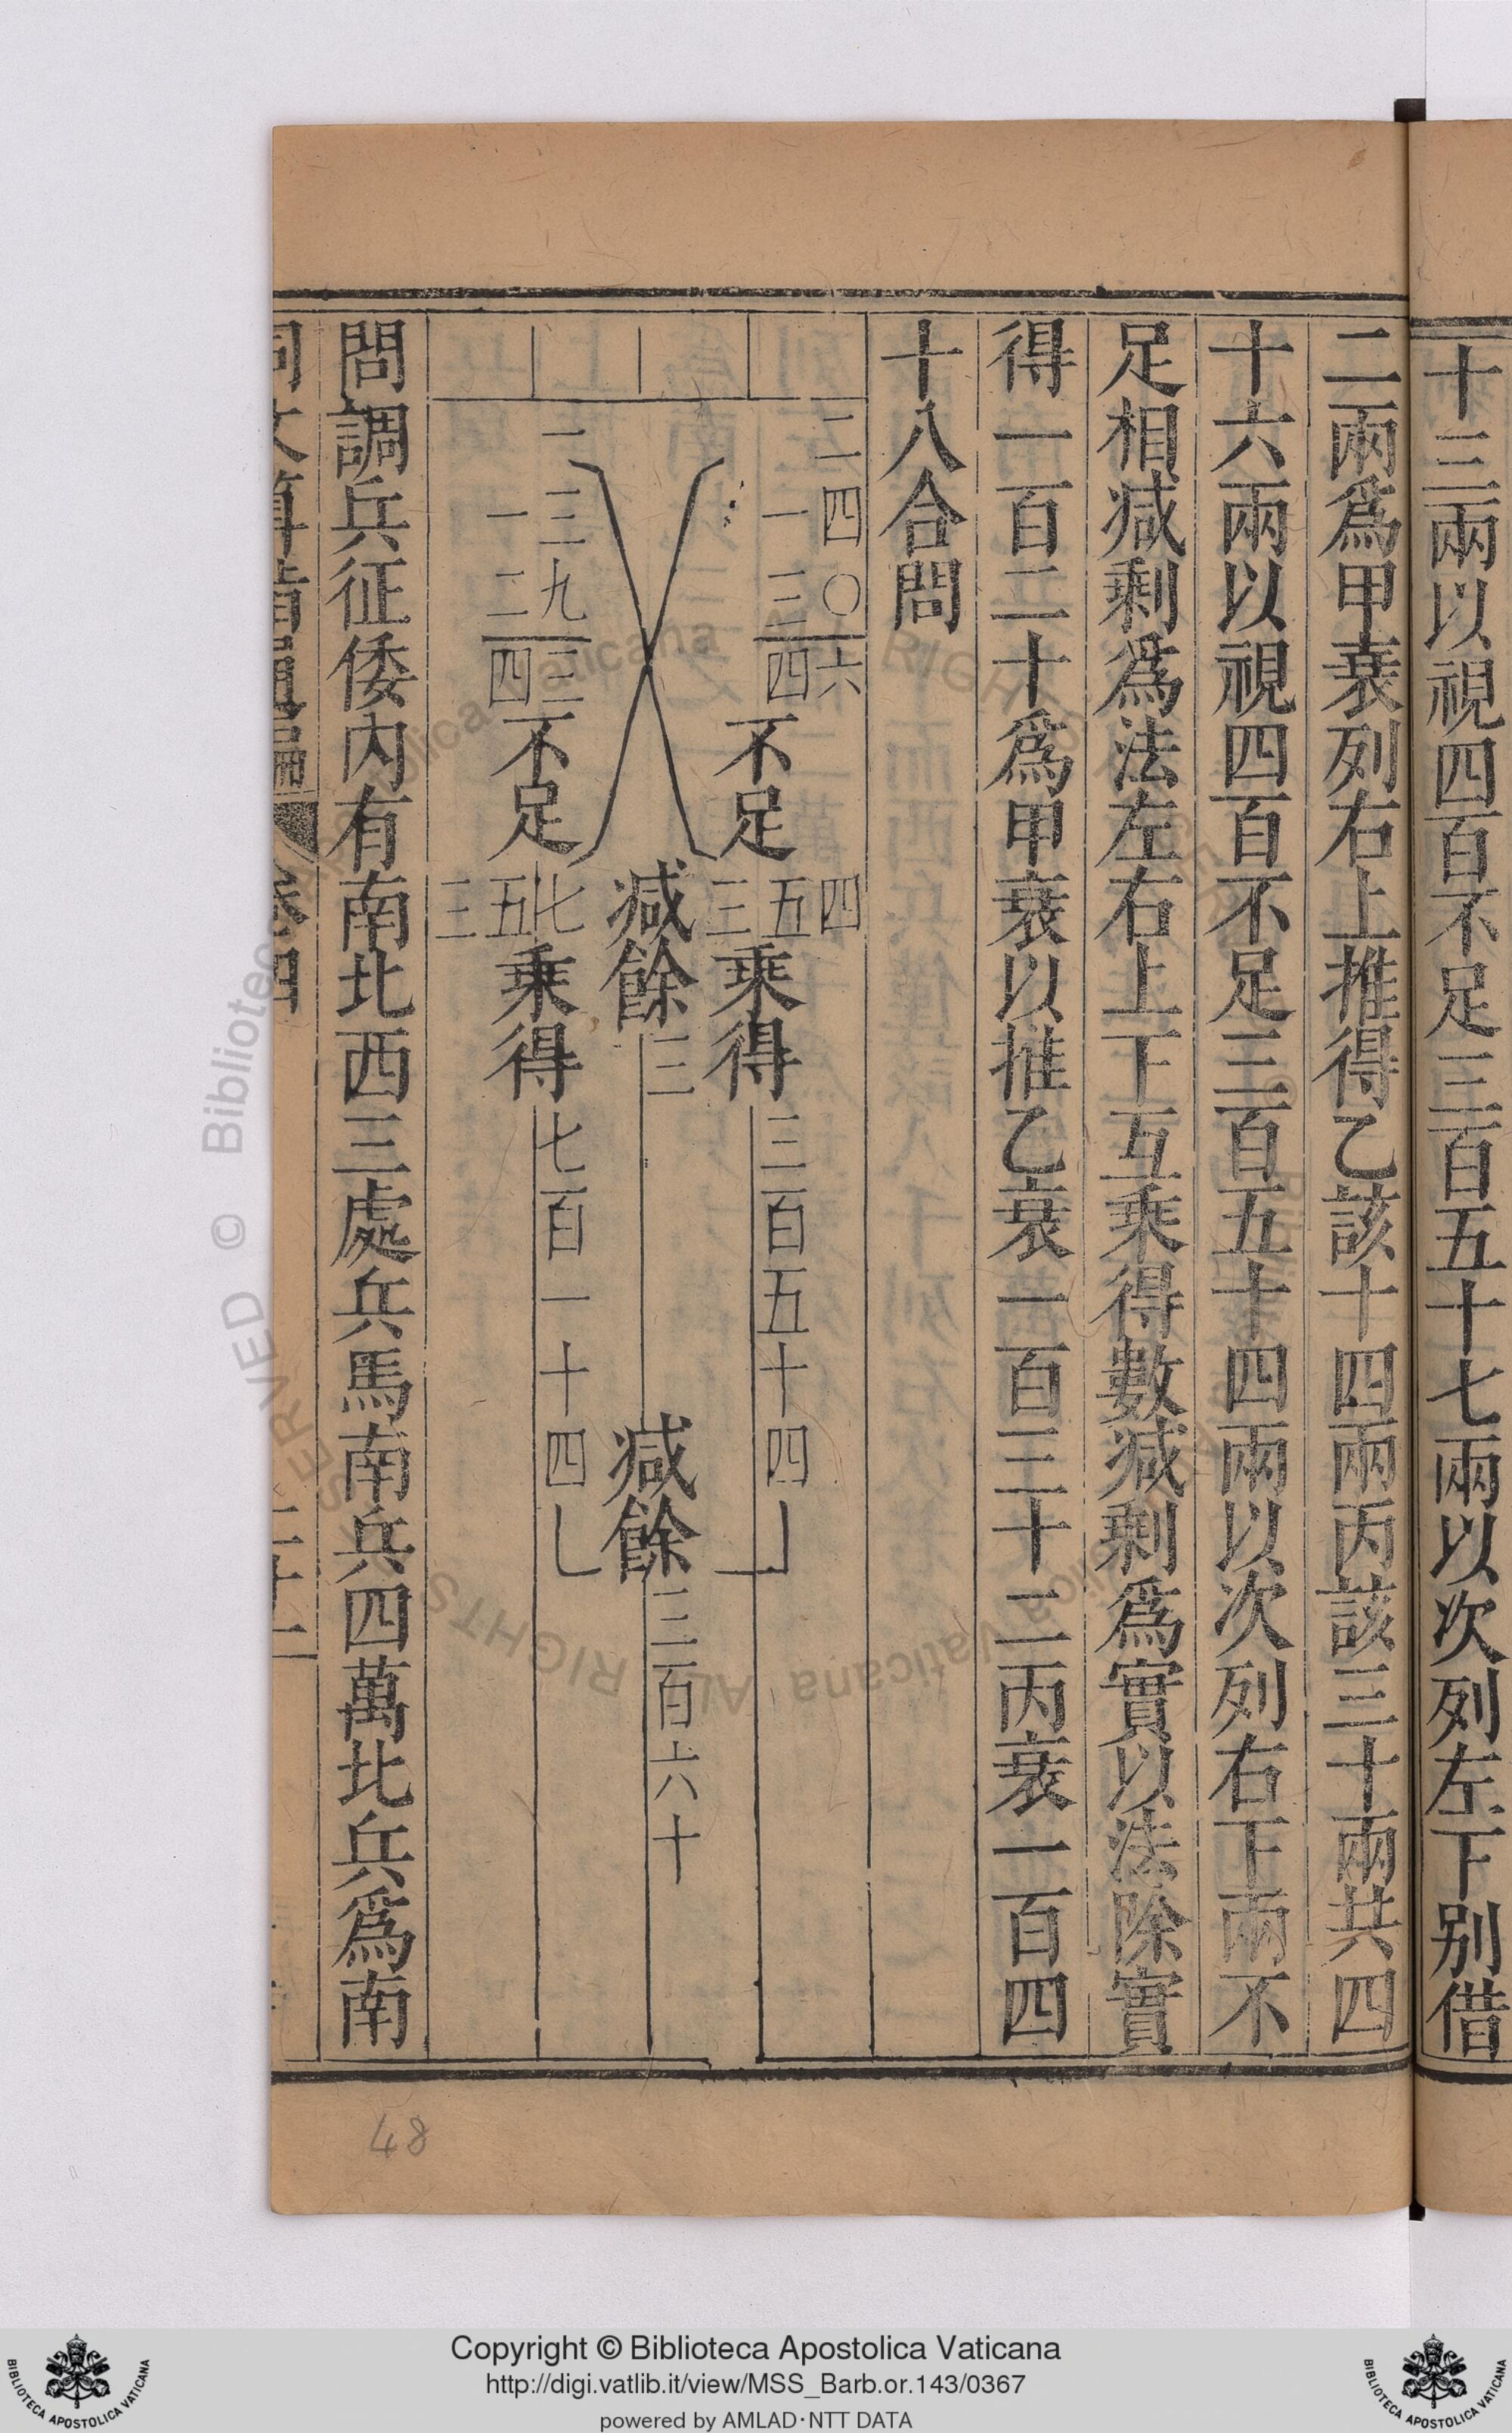 十三兩以視四百不足三百五十七兩以次列左下别借
二兩爲甲衰列右上推得乙該十四兩丙該三十兩共四
十六兩以視四百不足三百五十四兩以次列右下兩不
足相減剩爲法左右上下互乘得數減剩爲實以法除實
得一百二十爲甲衰以推乙衰一百三十二丙衰一百四
十八合問
二四〇六
一三四
不足
四
五
三
乘得
三百五十四
減餘
三
減餘
三百六十
一三九三
一二四
不足
七
五
三
乘得
七百一十四
問調兵征倭內有南北西三處兵馬南兵四萬北兵爲南
同文算指通編 卷四
48
Copyright © Biblioteca Apostolica Vaticana
http://digi.vatlib.it/view/MSS_Barb.or.143/0367
powered by AMLAD·NTT DATA